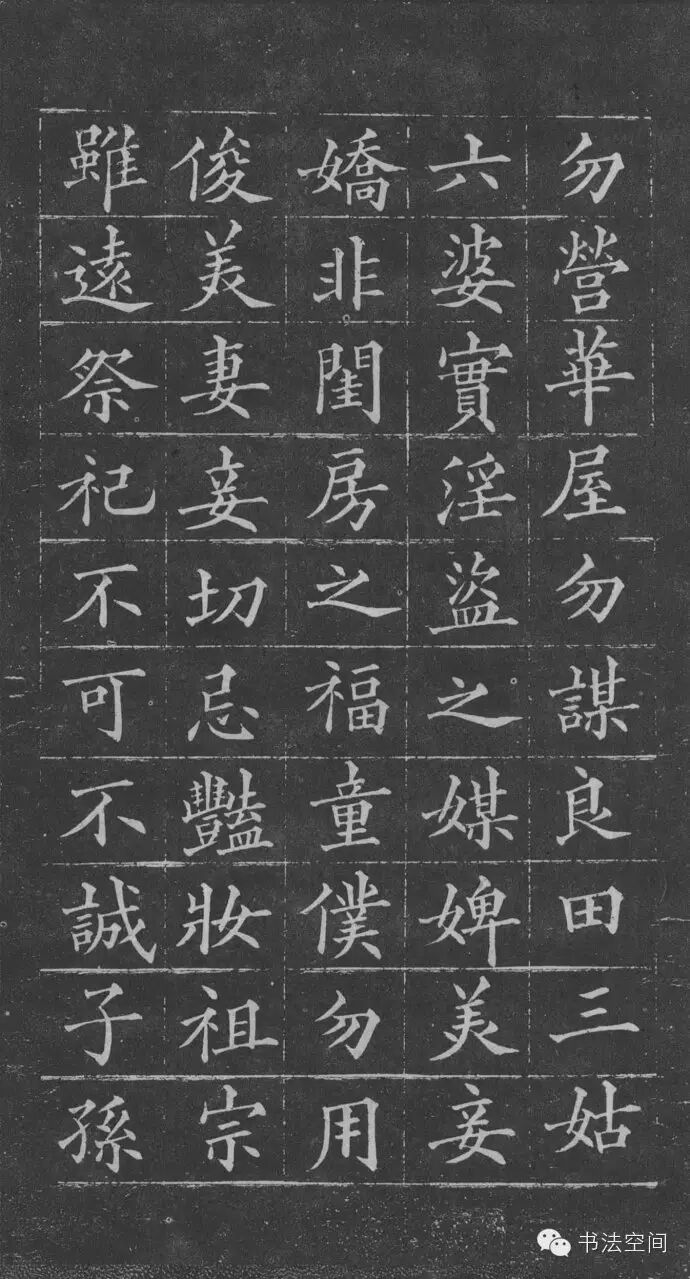 勿營華屋勿謀良田三姑
六婆實淫盜之媒婢美妾
嬌非閨房之福童僕勿用
俊美妻妾切忌豔妝祖宗
雖遠祭祀不可不誠子孫
书法空间